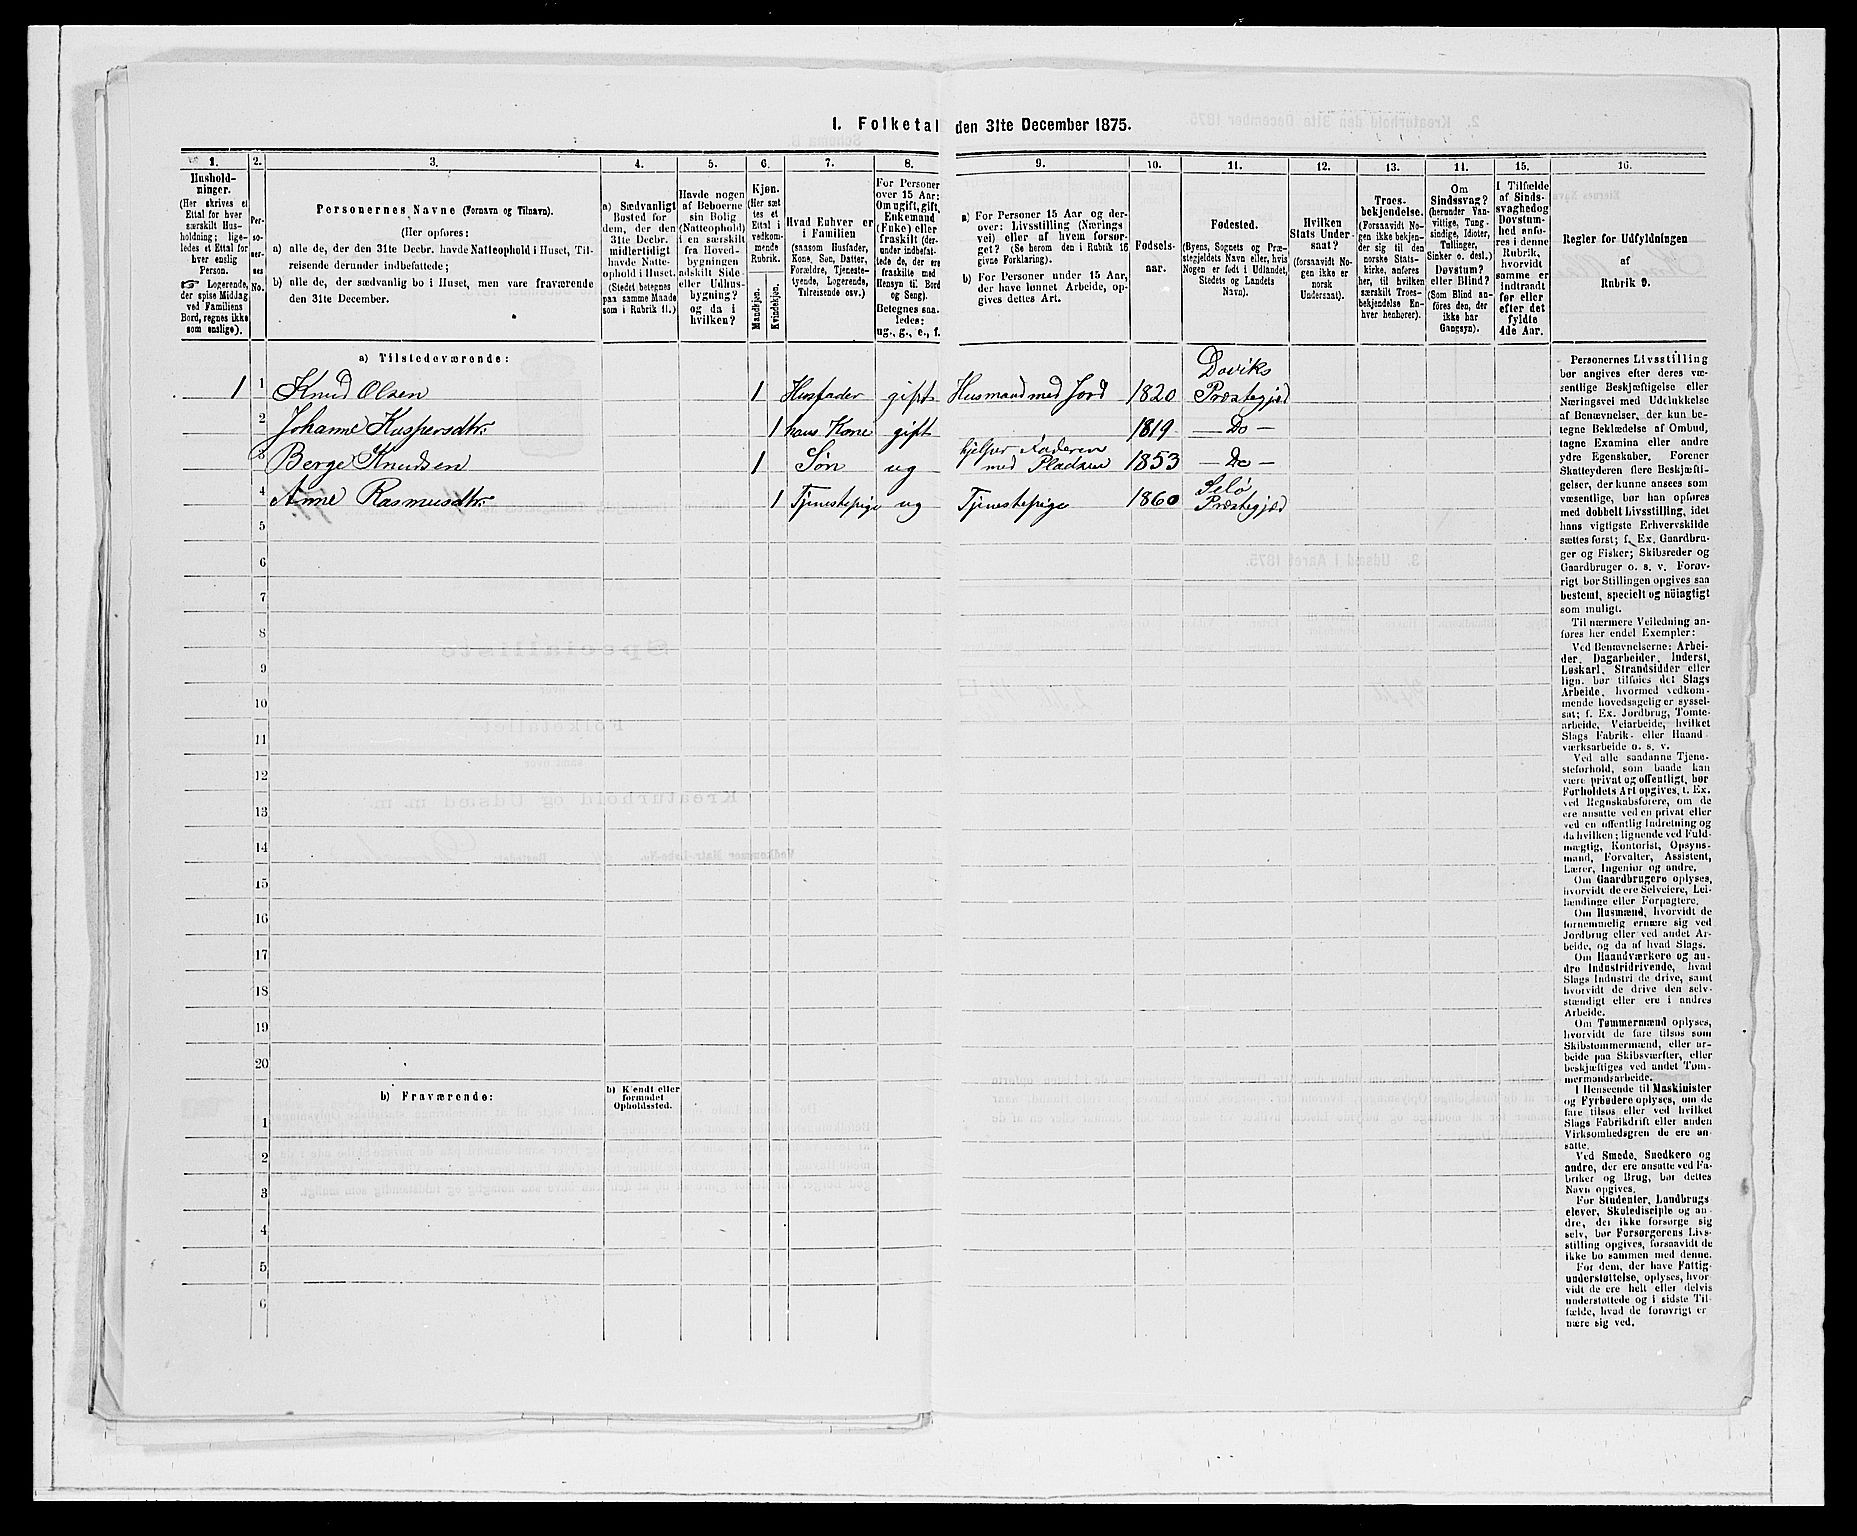 1. Folketal den 31te December 1875.
1.
2.
3.
4.
5.
6.
7.
8.
9.
10.
11.
12.
13.
14.
15.
16.
Hushold-
ninger.
(Her skrives et
Ettal for hver
særskilt Hus-
holdning; lige-
ledes et Ettal for
hver enslig
Person.
Logerende,
der spise Middag
ved Familiens
Bord, regnes ikke
som enslige).
Per-
so-
ner-
nes
No.
Personernes Navne (Fornavn og Tilnavn).
(Her opføres:
a) alle de, der den 31te Decbr. havde Natteophold i Huset, Til-
reisende derunder indbefattede;
b) alle de, der sædvanlig bo i Huset, men vare fraværende
den 31te December.
a) Sædvanligt
Bosted for
dem, der den
31te Decbr.
midlertidigt
havde Natte-
ophold i Huset.
(Stedet betegnes
paa samme Maade
som i Rubrik 11.)
Havde nogen
af Beboerne
sin Bolig
(Natteophold)
i en særskilt
fra Hoved-
bygningen
adskilt Side-
eller Udhus-
bygning?
og da i
hvilken?
Kjøn.
(Her sæt-
tes et
Ettal i
vedkom-
mende
Rubrik.
Mandkjøn.
Kvindekjøn.
Hvad Enhver er
i Familien
(saasom Husfader,
Kone, Søn, Datter,
Forældre, Tjeneste-
tyende, Logerende,
Tilreisende osv.)
For Personer
over 15 Aar:
Om ugift, gift,
Enkemand
(Enke) eller
fraskilt (der-
under indbefat-
tede de, der ere
fraskilte med
Hensyn til Bord
og Seng).
Betegnes saa-
ledes:
ug., g., e., f.
a) For Personer 15 Aar og der-
over: Livsstilling (Nærings
vei) eller af hvem forsør-
get? (Se herom den i Rubrik 16
givne Forklaring).
b) For Personer under 15 Aar,
der have lønnet Arbeide, op-
gives dettes Art.
Fødsels-
aar.
Fødested.
(Byens, Sognets og Præ-
stegjeldets Navn eller, hvis
Nogen er født i Udlandet,
Stedets og Landets
Navn).
Hvilken
Stats Under-
saat?
(forsaavidt No-
gen ikke er
norsk
Undersaat).
Troes-
bekjendelse.
(Forsaavidt No-
gen ikke bekjen-
der sig til den
norske Stats-
kirke, anføres
her, til hvilken
særskilt Troes-
bekjendelse En-
hver henhører).
Om
Sindssvag?
(herunder Van-
vittige, Tung-
sindige, Idioter,
Tullinger,
Sinker o. desl.)
Døvstum?
eller Blind?
(Som Blind an-
føres den, der
ikke har
Gangsyn).
I Tilfælde
af Sinds-
svaghed og
Døvstum-
hed anfø-
res i denne
Rubrik,
hvorvidt
samme er
indtraadt
før eller
efter det
fyldte
4de Aar.
Regler for Udfyldningen
af
Rubrik 9.
a) Tilstedeværende:
1 1 Knud Olsen 1 Husfader gift Husmand med Jord 1820 Daviks Præstegjæld
2 Johanne Kaspersdtr. 1 hans Kone gift 1819 — Do —
3 Berge Knudsen 1 Søn ug hjelper Faderen med Pladsen 1853 — Do —
4 Anne Rasmusdtr. 1 Tjenestepige ug Tjenestepige 1860 Selø Præstegjæld
5
6
7
8
9
10
11
12
13
14
15
16
17
18
19
20
b) Fraværende:
b) Kjendt eller
formodet
Opholdssted.
1
2
3
4
5
6
Personernes Livsstilling
bør angives efter deres væ-
sentlige Beskjæftigelse eller
Næringsvei med Udelukkelse
af Benævnelser, der kun be-
tegne Beklædelse af Ombud,
tagne Examina eller andre
ydre Egenskaber. Forener
Skatteyderen flere Beskjæfti-
gelser, der kunne ansees som
væsentlige, bør han opføres
med dobbelt Livsstilling, idet
hans vigtigste Erhvervskilde
sættes først; f. Ex. Gaardbru-
ger og Fisker; Skibsreder og
Gaardbruger o. s. v. Forøv-
rigt bør Stillingen opgives saa
bestemt, specielt og nöiagtigt
som muligt.
Til nærmere Veiledning an-
føres her endel Exempler:
Ved Benævnelserne: Arbei-
der, Dagarbeider, Inderst,
Løskarl, Strandsidder eller
lign. bør tilføies det Slags
Arbeide, hvormed vedkom-
mende hovedsagelig er syssel-
sat; f. Ex. Jordbrug, Tomte-
arbeide, Veiarbeide, hvilket
Slags Fabrik- eller Haand
værksarbeide o. s. v.
Ved alle saadanne Tjene-
steforhold, som baade kan
være privat og offentligt, bør
Forholdets Art opgives, f. Ex.
ved Regnskabsførere, om de
ere ansatte ved en privat eller
ved en offentlig Indretning og
da hvilken; lignende ved Fuld-
mægtig, Kontorist, Opsyns-
mand, Forvalter, Assistent,
Lærer, Ingeniør og andre.
Om Gaardbrugere oplyses,
hvorvidt de ere Selveiere, Lei-
lændinge eller Forpagtere.
Om Husmænd, hvorvidt de
fornemmelig ernære sig ved
Jordbrug eller ved andet Ar-
beide, og da af hvad Slags.
Om Haandværkere og an-
dre Industridrivende, hvad
Slags Industri de drive, samt
hvorvidt de drive den selv-
stændigt eller ere i andres
Arbeide.
Om Tømmermænd oplyses,
hvorvidt de fare tilsøs som
Skibstømmermænd, eller ar-
beide paa Skibsværfter, eller
beskjæftiges ved andet Tøm-
mermandsarbeide.
I Henseende til Maskinister
og Fyrbødere oplyses, om de
fare tilsøs eller ved hvilket
Slags Fabrikdrift eller anden
Virksomhedsgren de ere an-
satte.
Ved Smede, Snedkere og
andre, der ere ansatte ved Fa-
briker og Brug, bør dettes
Navn opgives.
For Studenter, Landbrugs
elever, Skoledisciple og an-
dre, der ikke forsørge sig
selv, bør Forsørgerens Livs-
stilling opgives, forsaavidt de
ikke bo sammen med denne.
For dem, der have Fattig-
understøttelse, oplyses, hvor-
vidt de ere helt eller delvis
understøttede og i sidste Til-
fælde, hvad de forøvrigt er
nære sig ved.